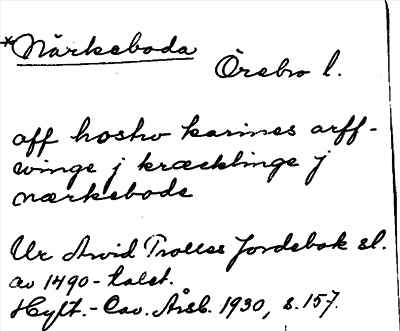 *Närkeboda
Örebro l.
aff hosho karines arff-
winge j kræcklinge j
nærkebode
Ur Arvid Trolles Jordebok sl.
av 1490-talet.
Hylt.-Cav. Årsb. 1930, s. 157.